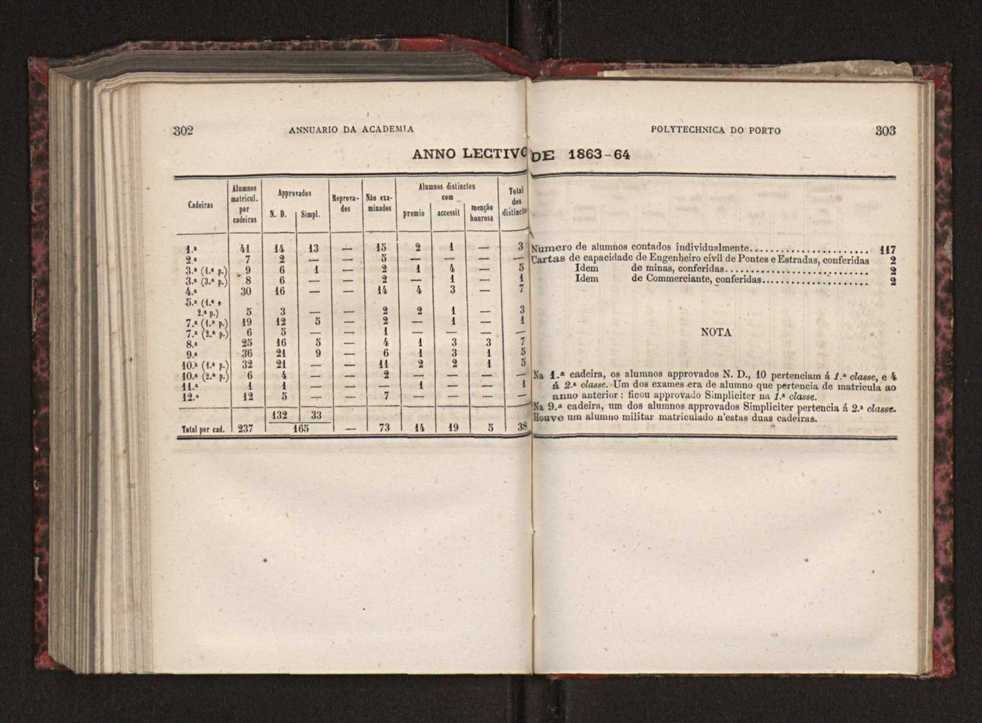 302 ANNUARIO DA ACADEMIA
ANNO LECTIVO
Cadeiras | Alumnos matricul. por cadeiras | Approvados N. D. | Simpl. | Reprovados | Não examinados | Alumnos distinctos com premio | accessit | menção honrosa | Total dos distinctos
1.ª 41 14 13 — 15 2 1 — 3
2.ª 7 2 — — 5 — — — —
3.ª (1.ª p.) 9 6 1 — 2 1 4 — 5
3.ª (3.ª p.) 8 6 — — 2 — 1 — 1
4.ª 30 16 — — 14 4 3 — 7
5.ª (1.ª e
2.ª p.) 5 3 — — 2 2 1 — 3
7.ª (1.ª p.) 19 12 5 — 2 — 1 — 1
7.ª (2.ª p.) 6 5 — — 1 — — — —
8.ª 25 16 5 — 4 1 3 3 7
9.ª 36 21 9 — 6 1 3 1 5
10.ª (1.ª p.) 32 21 — — 11 2 2 1 5
10.ª (2.ª p.) 6 4 — — 2 — — — —
11.ª 1 1 — — — 1 — — 1
12.ª 12 5 — — 7 — — — —
132 33
Total por cad. 237 165 — 73 14 19 5 38
POLYTECHNICA DO PORTO 303
DE 1863-64
Numero de alumnos contados individualmente 117
Cartas de capacidade de Engenheiro civil de Pontes e Estradas, conferidas 2
Idem de minas, conferidas 2
Idem de Commerciante, conferidas 2
NOTA
Na 1.ª cadeira, os alumnos approvados N. D., 10 pertenciam á 1.ª classe, e 4
á 2.ª classe. Um dos exames era de alumno que pertencia de matricula ao
anno anterior: ficou approvado Simpliciter na 1.ª classe.
Na 9.ª cadeira, um dos alumnos approvados Simpliciter pertencia á 2.ª classe.
Houve um alumno militar matriculado n'estas duas cadeiras.